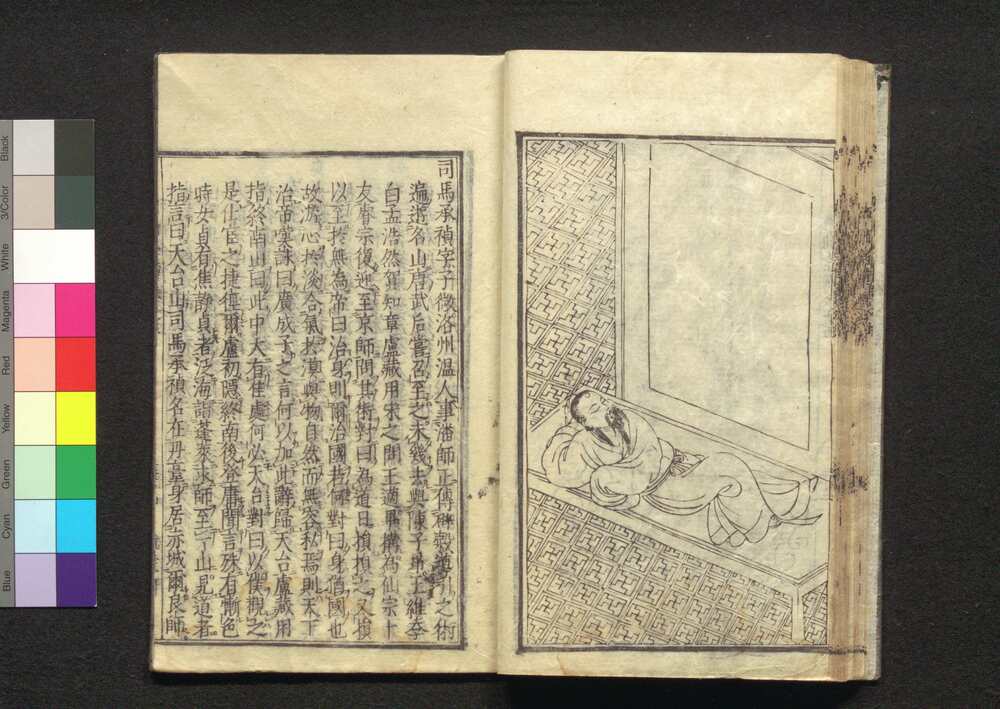 司馬承禎字子微洛州温人事潘師正傳辟穀導引之術
遍遊名山唐武后嘗召至之未幾去與陳子昻王維李
白孟浩然賀知章盧藏用宋之問王適畢構為仙宗十
友睿宗復迎至京師問其術對曰為道日損損之又損
以至於無為帝曰治身則爾治國若何對曰身猶國也
故游心於淡合氣於漠與物自然而無容私焉則天下
治帝嘆詠曰廣成子之言何以加此辭歸天台盧藏用
指終南山曰此中大有佳處何必天台對曰以僕觀之
是仕宦之捷徑爾盧初隱終南後登庸聞言殊有慚色
時女貞有焦靜貞者泛海詣蓬萊求師至一山見道者
指言曰天台山司馬承禎名在丹臺身居赤城爾良師
Black
3/Color
White
Magenta
Red
Yellow
Green
Cyan
Blue